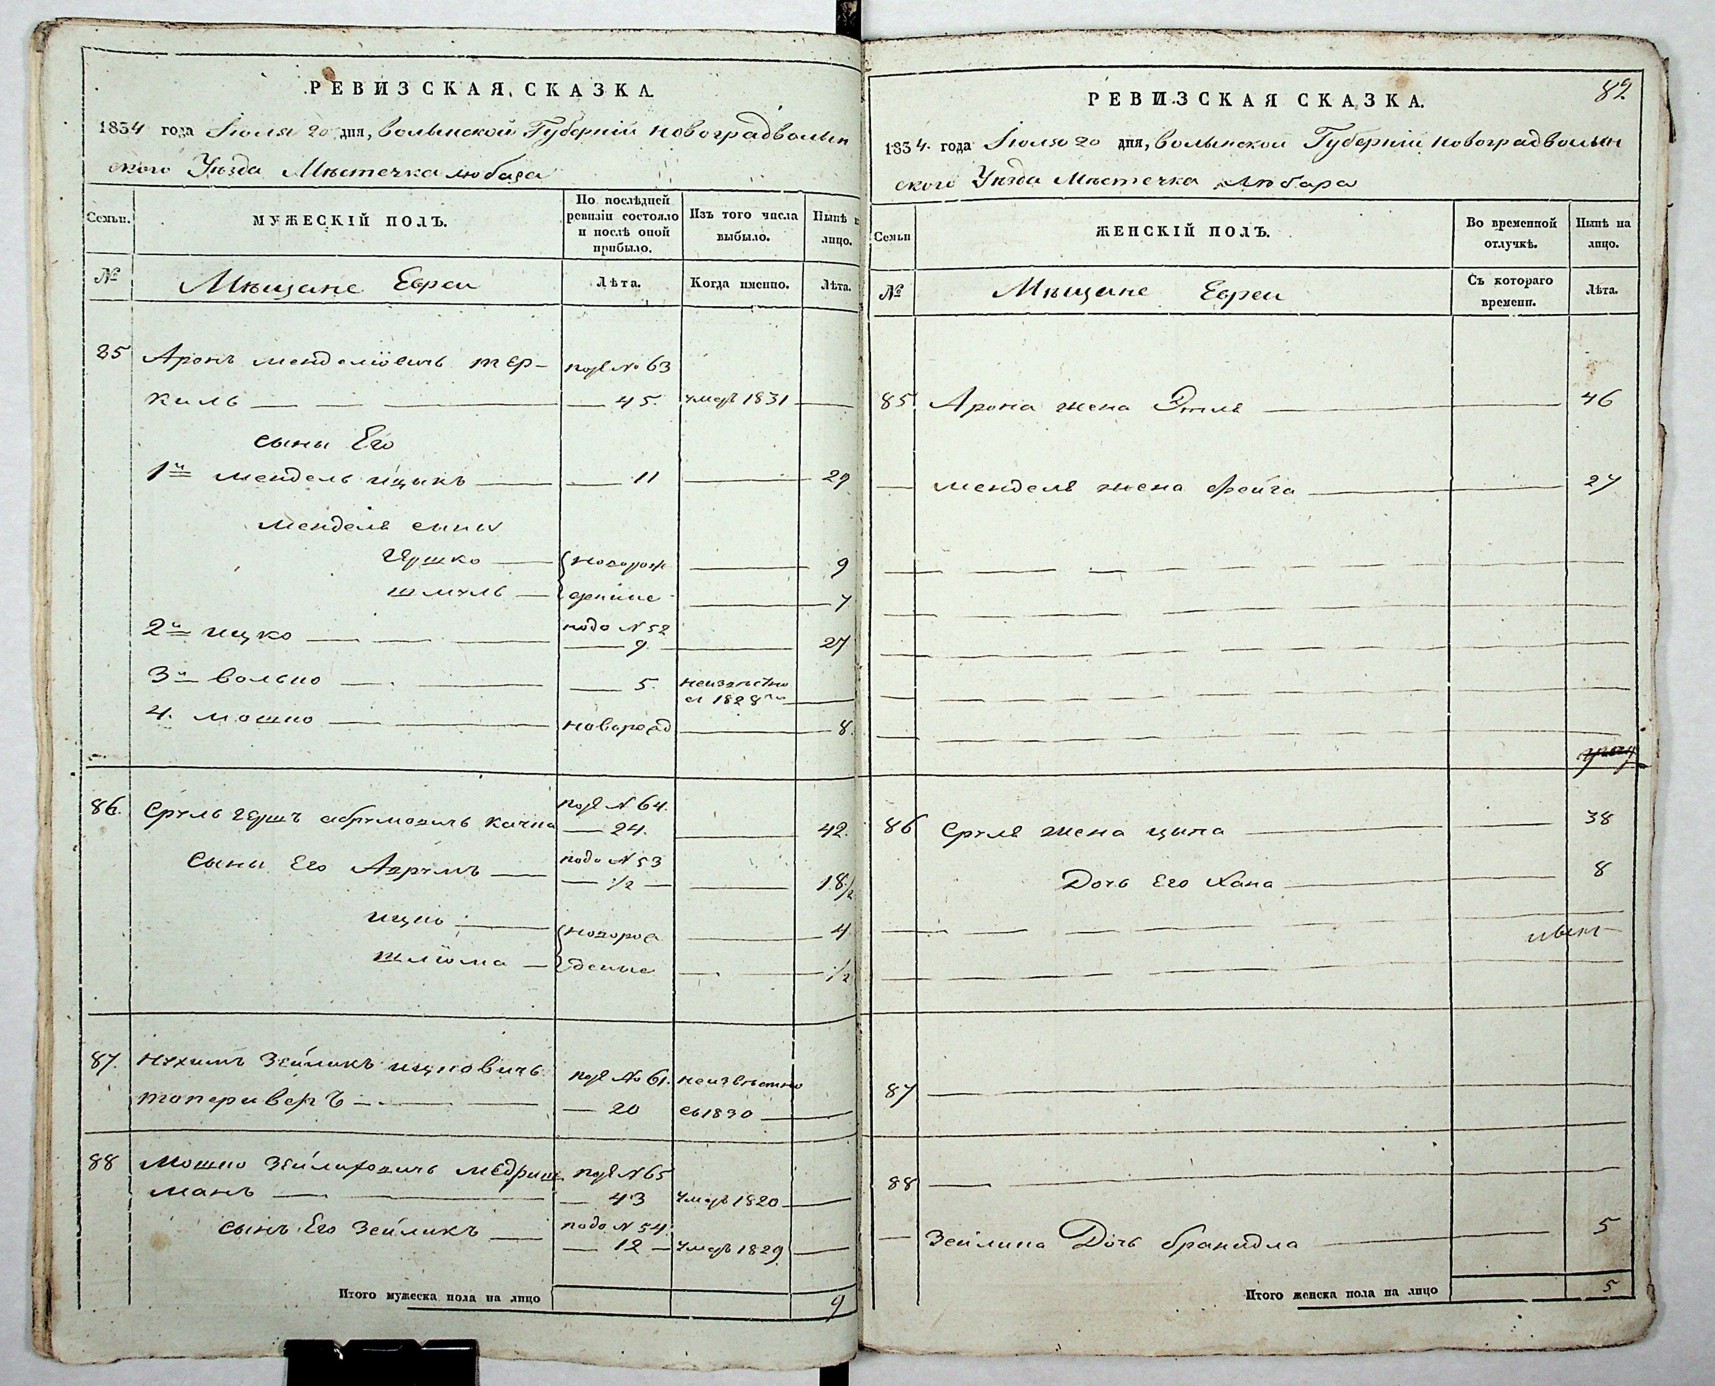 РЕВИЗСКАЯ СКАЗКА.
1834 года Іюля 20 дня, Волынской Губерніи Новоградволын
ского Уѣзда Мѣстечка Любара
Семьи.
МУЖЕСКІЙ ПОЛЪ.
По послѣдней ревизіи состояло и послѣ оной прибыло.
Изъ того числа выбыло.
Нынѣ на лицо.
№
Мѣщане Евреи
Лѣта.
Когда именно.
Лѣта.
85 Аронъ Менделіовичъ Тер- подъ № 63
киль 45. умеръ 1831
сыны Его
1й Мендель Ицыкъ 11 29
Менделя сыны
Гершко новорож 9
Шмуль денные 7
2й Ицко подъ N 52
9 27
3й Волько 5. неизвѣстно
съ 1828го
4. Мошко новорожд 8.
86. Сруль Гершъ Абрумовичъ подъ N 64.
24. 42.
сыны Его Аврумъ подъ N 53
1/2 18 1/2
Ицко новорож 4
Шліома денные 1/2
87. Нухимъ Зейликъ Ицковичъ подъ № 61. неизвѣстно
Топериверъ 20 съ 1830
88 Мошко Зейликовичъ Медриш подъ N 65
манъ 43 умеръ 1820
сынъ Его Зейликъ подъ N 54.
12 умеръ 1829
Итого мужеска пола на лицо 9
82
РЕВИЗСКАЯ СКАЗКА.
1834. года Іюля 20 дня, Волынской Губерніи Новоградволын
ского Уѣзда Мѣстечка Любара
Семьи
ЖЕНСКІЙ ПОЛЪ.
Во временной отлучкѣ.
Нынѣ на лицо.
№
Мѣщане Евреи
Съ котораго времени.
Лѣта.
85 Арона жена Этля 46
Менделя жена Фейга 27
86 Сруля жена Ципа 38
Дочь Его Хана 8
87
88
Зейлика Дочь Бранидла 5
Итого женска пола на лицо 5